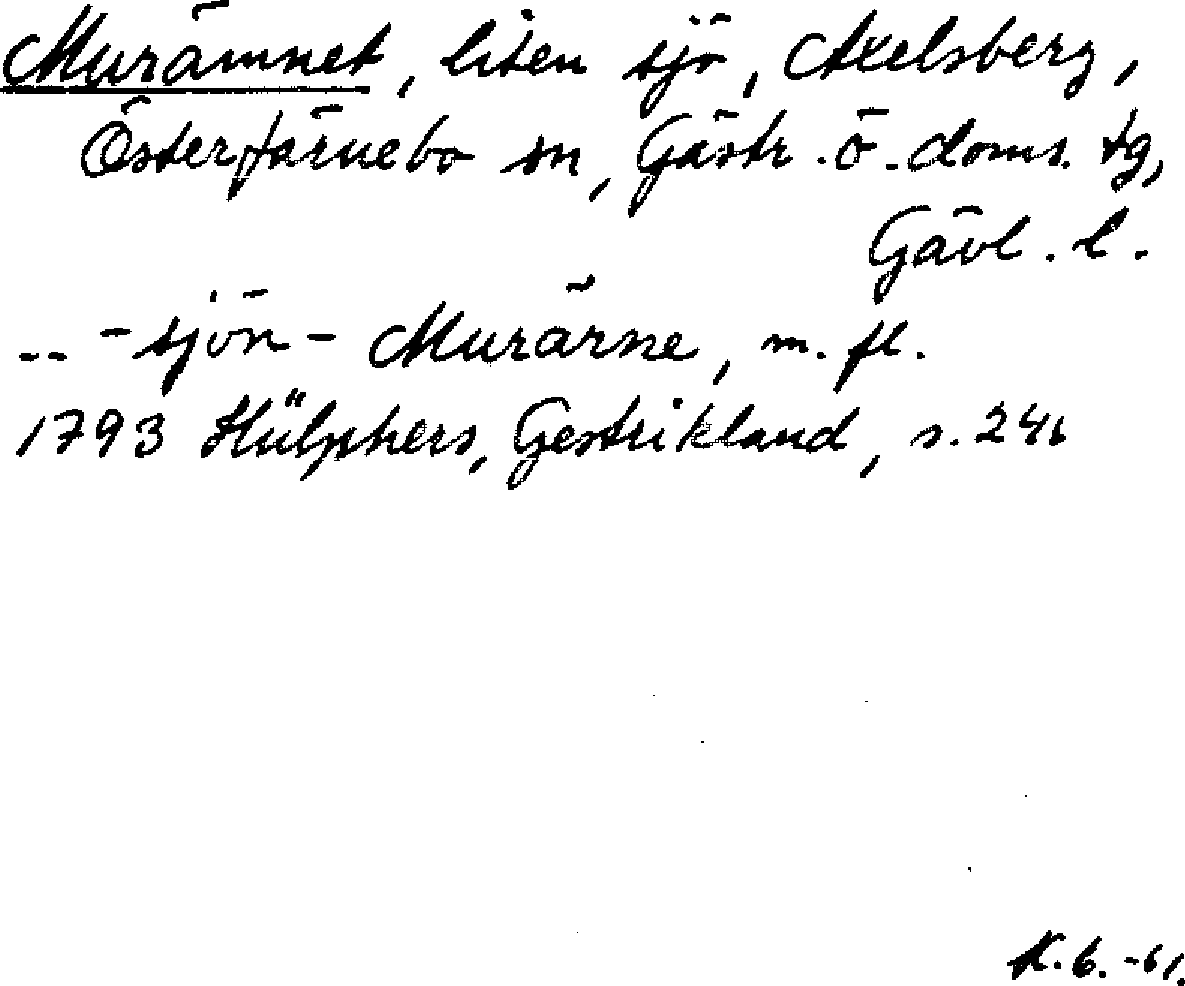 Murämnet, liten sjö, Axelsberg,
Österfärnebo sn, Gästr. ö. doms. tg,
Gävl. l.
-- - sjön - Murärne, m. fl.
1793 Hülphers, Gestrikland, s. 246
K.G. -61.